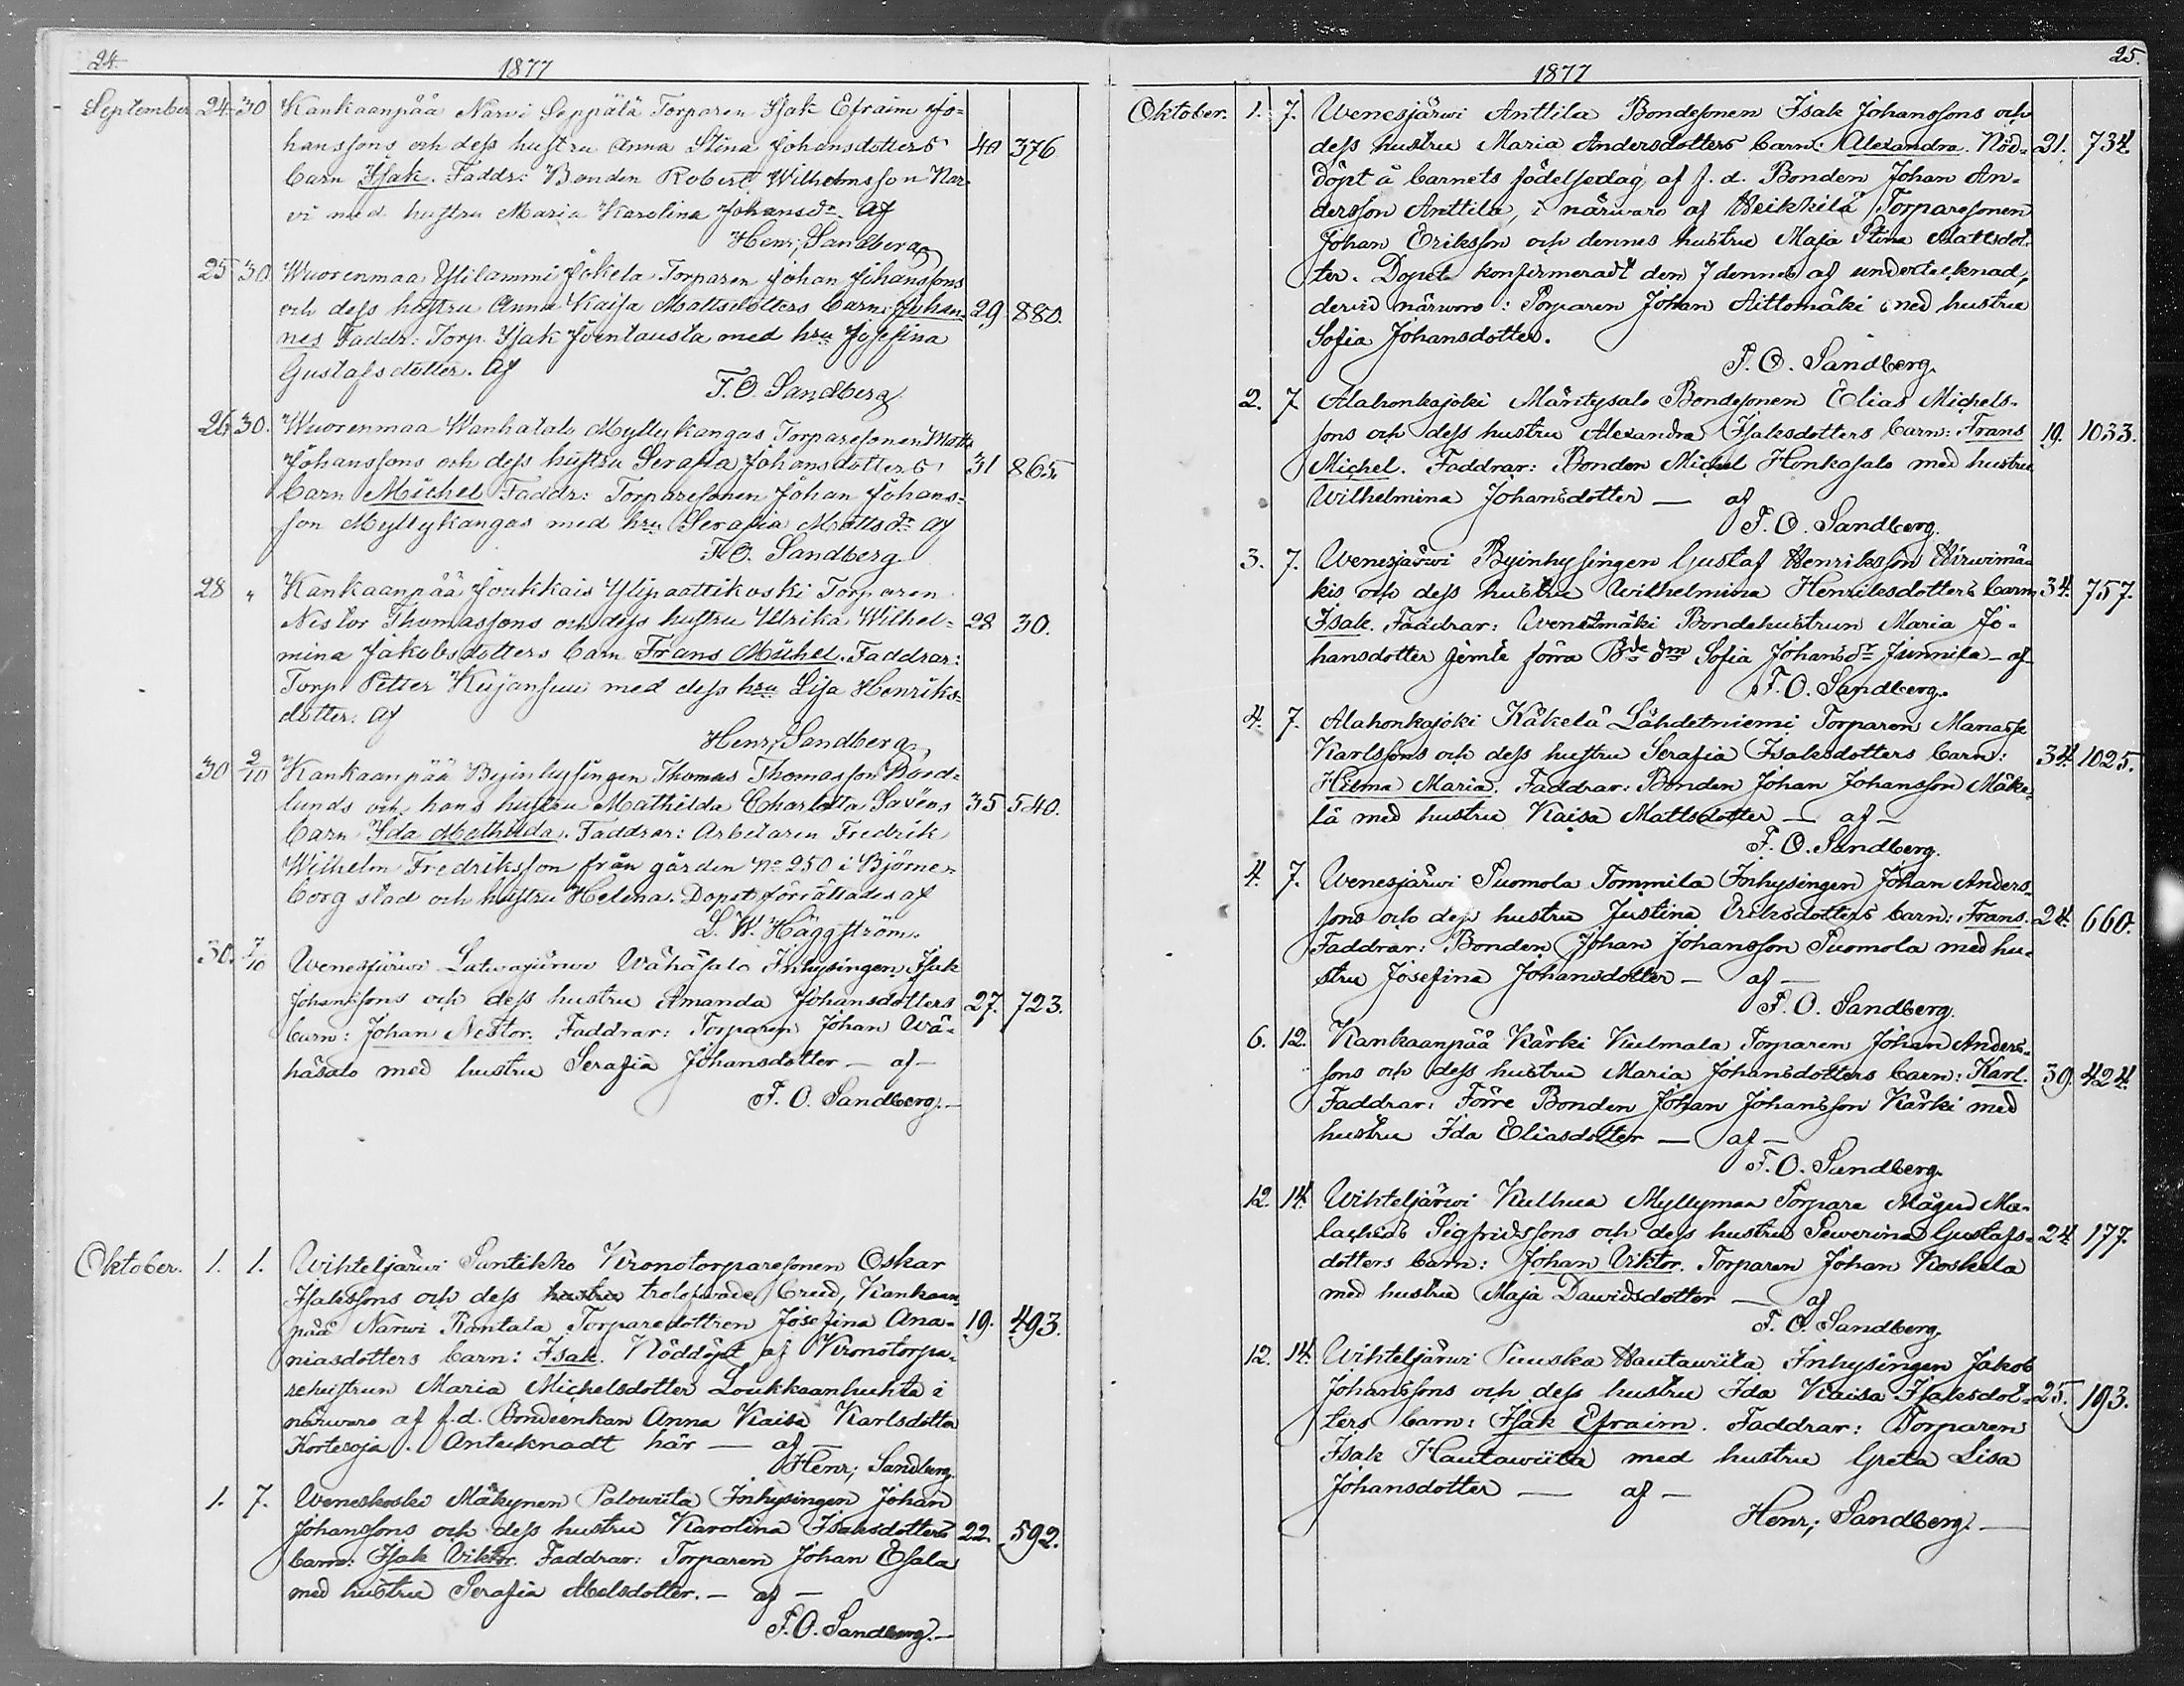 24.
1877
September 24 30 Kankaanpää Narvi Seppälä Torparen Isak Efraim Jo-
hanssons och dess hustru Anna Stina Johansdotters 40 376
barn Isak. Faddr: Bonden Robert Wilhelmsson Nar-
vi med hustru Maria Karolina Johansdr. Af
Henr; Sandberg
25 30 Wuorenmaa Ylilammi Jokela Torparen Johan Johanssons
och dess hustru Anna Kaisa Mattsdotters barn: Johan- 29 880.
nes Faddr: Torp. Isak Jöentausta med hru Josefina
Gustafsdotter. Af
F.O. Sandberg
26 30. Wuorenmaa Wanhatalo Myllykangas Torparesonen Matts
Johanssons och dess hustru Serafia Johansdotters 31 865.
barn Michel Faddr: Torparesonen Johan Johans-
son Myllykangas med hru Serafia Mattsdr Af
F.O. Sandberg
28 " Kankaanpää Joukkais Ylipaattikoski Torparen
Nestor Thomassons och dess hustru Ulrika Wilhel- 28 30.
mina Jakobsdotters barn Frans Michel. Faddrar:
Torp. Petter Kujansuu med dess hru Lisa Henriks-
dotter. Af
Henr; Sandberg
30 2/10 Kankaanpää Byinhysingen Thomas Thomasson Nord-
lunds och hans hustru Mathilda Charlotta Savéns 35 540.
barn Ida Mathilda. Faddrar: Arbetaren Fredrik
Wilhelm Fredriksson från gården No 250 i Björne-
borg stad och hustru Helena. Dopet förrättades af
L. W. Häggström.
30. 7/10 Wenesjärwi Latwajärwi Wähäsalo Inhysingen Isak
Johanssons och dess hustru Amanda Johansdotters 27. 723.
barn: Johan Nestor. Faddrar: Torparen Johan Wä-
häsalo med hustru Serafia Johansdotter — af —
F. O. Sandberg. —
Oktober. 1. 1. Wihteljärwi Santikko Kronotorparesonen Oskar
Isakssons och dess hustru trolofvade brud, Kankaan-
pää Narwi Rantala Torparedottren Josefina Ana- 19. 493.
niasdotters barn: Isak. Nöddöpt af Kronotorpa-
rehustrun Maria Michelsdotter Loukkaanhuhta i
närwaro af f.d. Bondeenkan Anna Kaisa Karlsdotter
Korteoja. Antecknadt här — af —
Henr; Sandberg.
1. 7. Weneskoski Mäkynen Palowiita Inhysingen Johan
Johanssons och dess hustru Karolina Isaksdotters 22. 592.
barn: Isak Viktor. Faddrar: Torparen Johan Esala
med hustru Serafia Abelsdotter. — af —
F. O. Sandberg. —
25.
1877
Oktober. 1. 7. Wenesjärwi Anttila Bondesonen Isak Johanssons och
dess hustru Maria Andersdotters barn: Alexandra. Nöd- 21. 734.
döpt å barnets födelsedag af f. d. Bonden Johan An-
dersson Anttila, i närwaro af Heikkilä Torparesonen
Johan Eriksson och dennes hustru Maja Stina Mattsdot-
ter. Dopet konfirmeradt den 7 dennes af undertecknad,
dervid närworo: Torparen Johan Aittomäki med hustru
Sofia Johansdotter.
F. O. Sandberg.
2. 7. Alahonkajoki Mäntysalo Bondesonen Elias Michels-
sons och dess hustru Alexandra Isaksdotters barn: Frans 19. 1033.
Michel. Faddrar: Bonden Michel Honkasalo med hustru
Wilhelmina Johansdotter — af
F. O. Sandberg.
3. 7. Wenesjärwi Byinhysingen Gustaf Henriksson Hirwimä-
kis och dess hustru Wilhelmina Henriksdotters barn 34. 757.
Isak. Faddrar: Wenetmäki Bondehustrun Maria Jo-
hansdotter jemte förra Bde dm Sofia Johansdr Junnila — af
F. O. Sandberg.
4. 7. Alahonkajoki Käkelä Lähdetniemi Torparen Manasse
Karlssons och dess hustru Serafia Isaksdotters barn: 34. 1025.
Hilma Maria. Faddrar: Bonden Johan Johansson Mäke-
lä med hustru Kaisa Mattsdotter — af —
F. O. Sandberg.
4. 7. Wenesjärwi Puomola Tommila Inhysingen Johan Anders-
sons och dess hustru Justina Eriksdotters barn: Frans. 24. 660.
Faddrar: Bonden Johan Johansson Puomola med hu-
stru Josefina Johansdotter — af —
F. O. Sandberg.
6. 12. Kankaanpää Kärki Kulmala Torparen Johan Anders-
sons och dess hustru Maria Johansdotters barn: Karl. 39. 424.
Faddrar: Förre Bonden Johan Johansson Kärki med
hustru Ida Eliasdotter — af —
F. O. Sandberg.
12. 14. Wihteljärwi Kulhua Myllymaa Torpare Mågen Ma-
lachias Sigfridssons och dess hustru Sewerina Gustafs- 24. 177.
dotters barn: Johan Viktor. Torparen Johan Koskela
med hustru Maja Dawidsdotter — af
F. O. Sandberg.
12. 14. Wihteljärwi Puuska Hautawiita Inhysingen Jakob
Johanssons och dess hustru Ida Kaisa Isaksdot- 25. 193.
ters barn: Isak Efraim. Faddrar: Torparen
Isak Hautawiita med hustru Greta Lisa
Johansdotter — af —
Henr; Sandberg. —